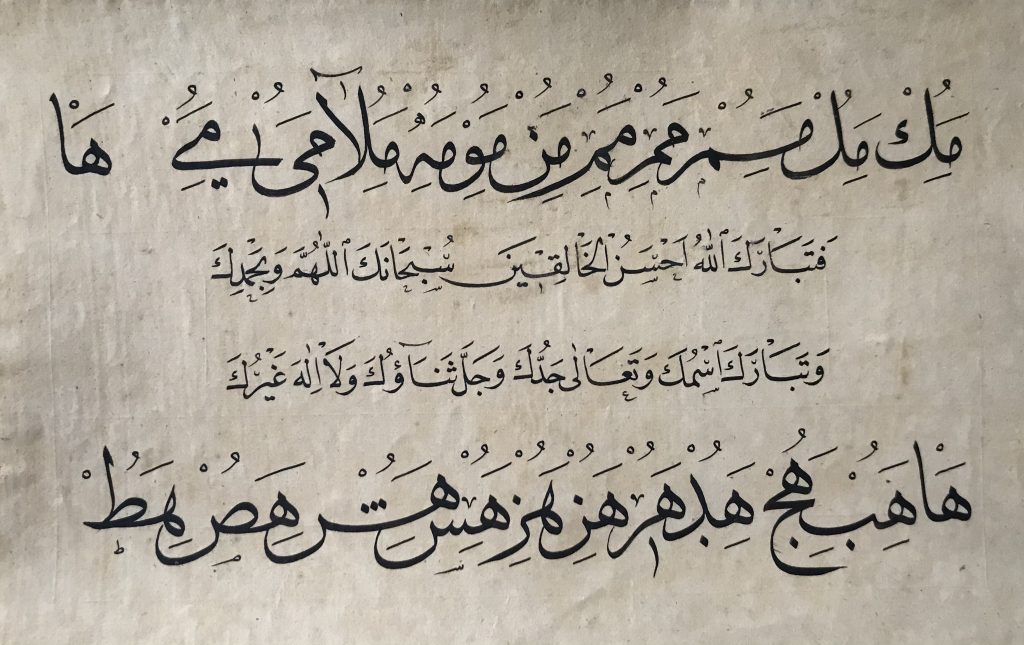 مك مل مم من مو مه ملا مى مے ها
فَتَبَارَكَ اللّٰهُ اَحْسَنُ الْخَالِقِينَ سُبْحَانَكَ اللّٰهُمَّ وَبِحَمْدِكَ
وَتَبَارَكَ اسْمُكَ وَتَعَالٰى جَدُّكَ وَجَلَّ ثَنَاؤُكَ وَلَا اِلٰهَ غَيْرُكَ
ها هب هج هد هر هس هص هط